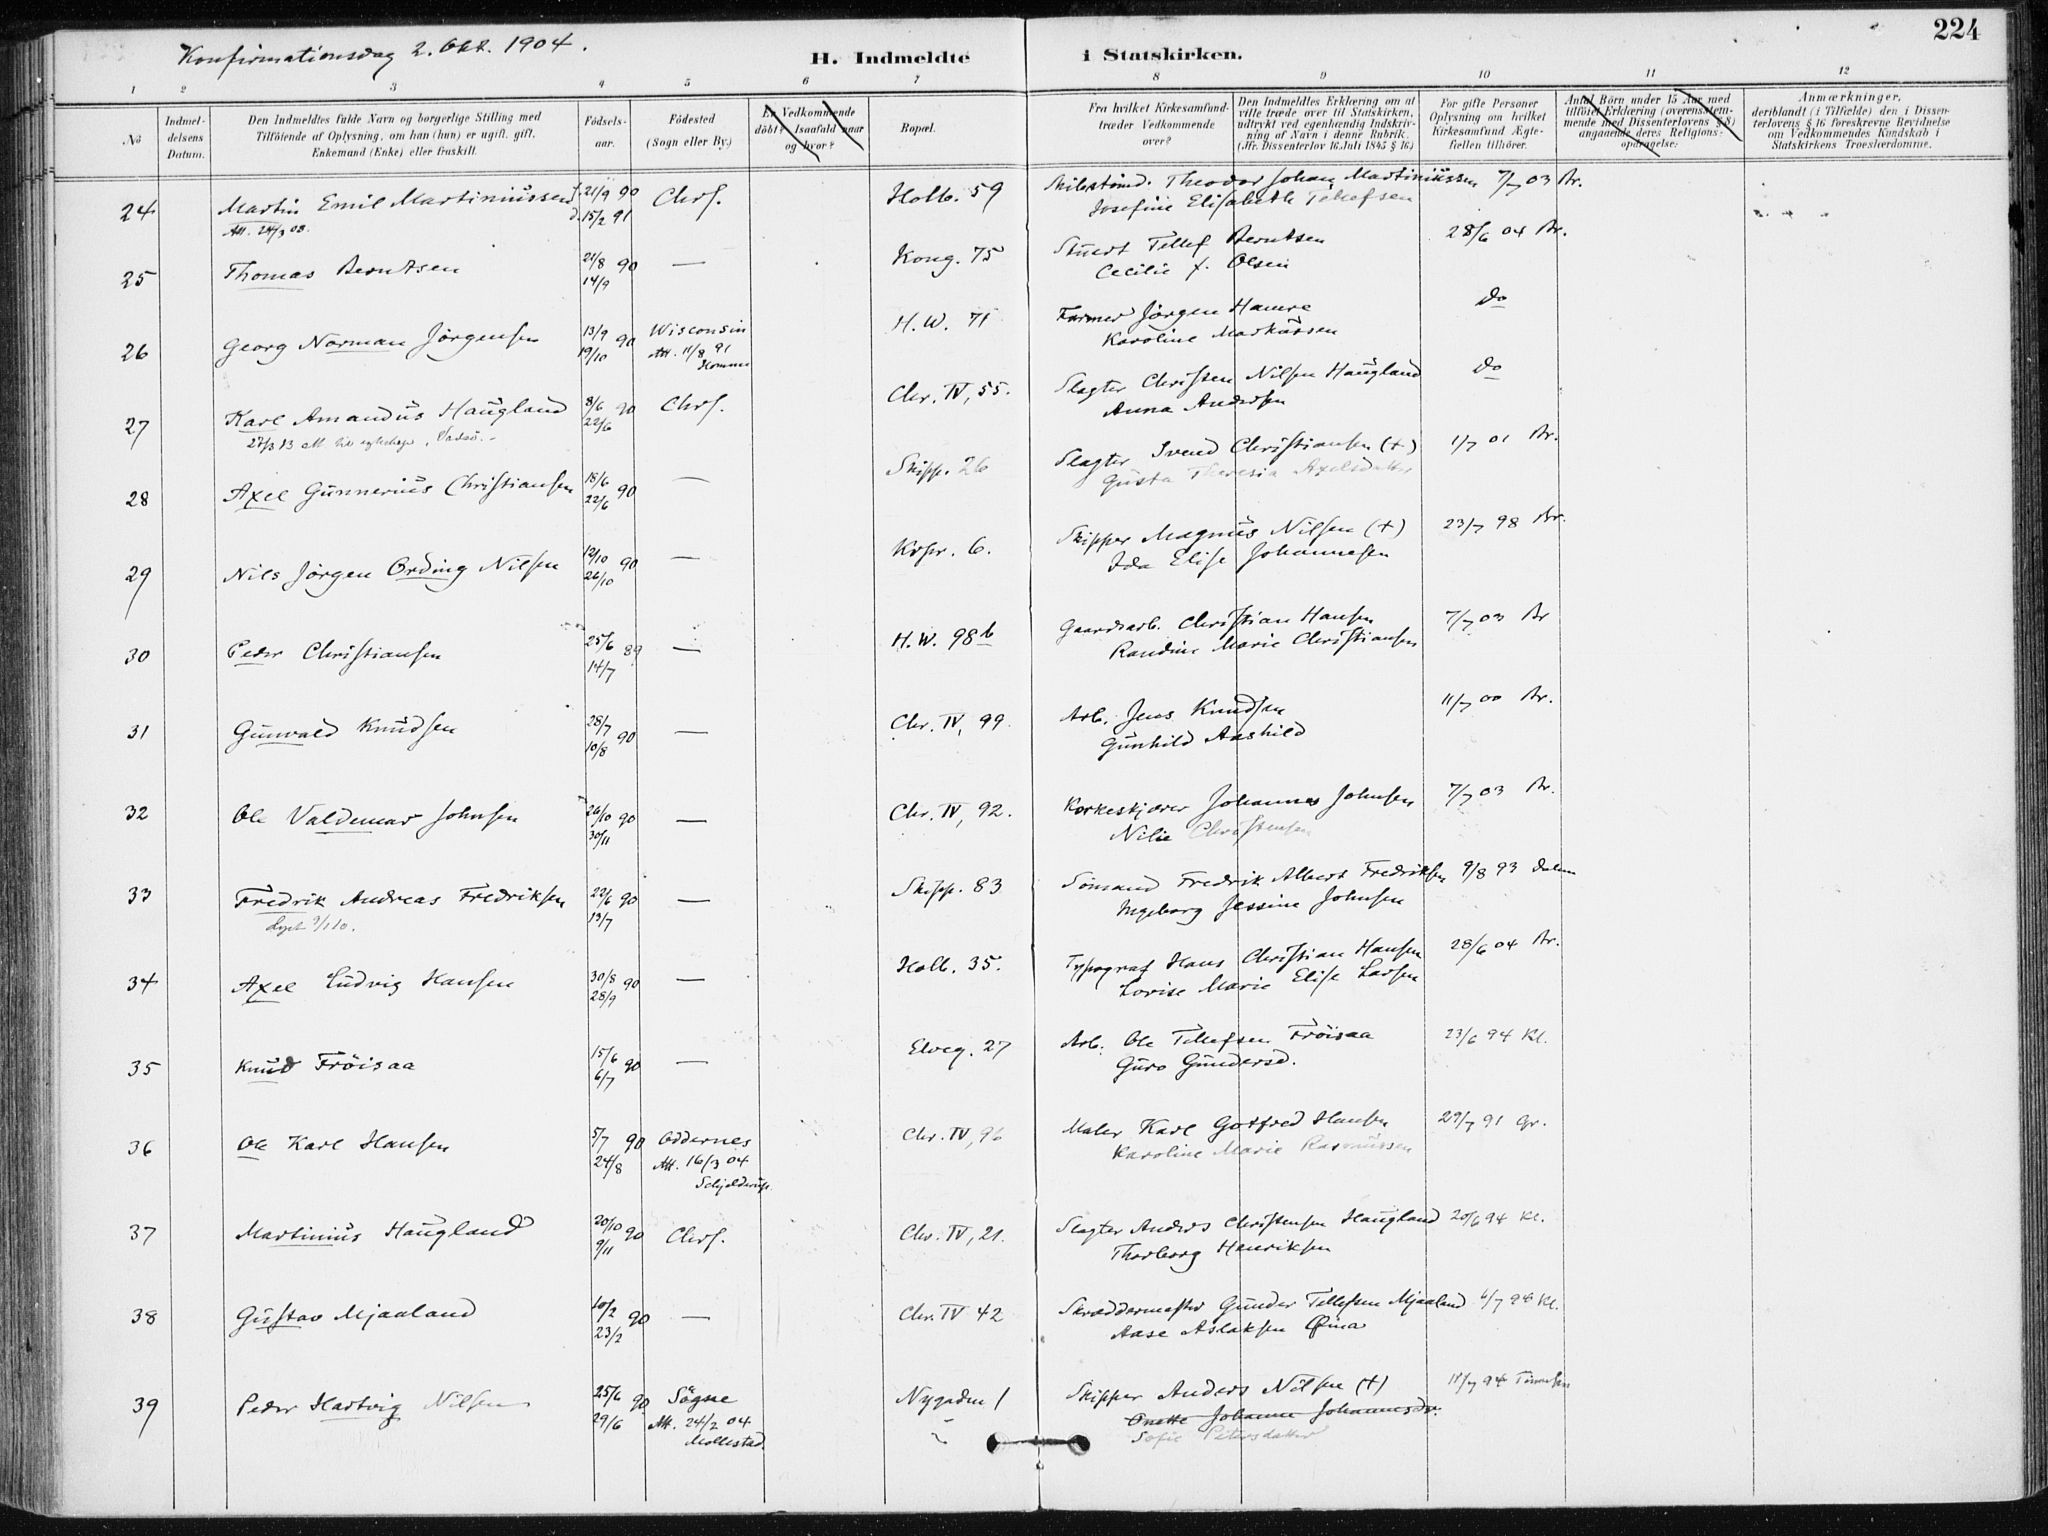 224
Konfirmationsdag 2. Okt. 1904.
H. Indmeldte i Statskirken.
1 2 3 4 5 6 7 8 9 10 11 12
No
Indmel-
delsens
Datum.
Den Indmeldtes fulde Navn og borgerlige Stilling med
Tilföiende af Oplysning, om han (hun) er ugift, gift,
Enkemand (Enke) eller fraskilt.
Födsels-
aar.
Födested
(Sogn eller By.)
Er Vedkommende
döbt? Isaafald naar
og hvor?
Bopæl.
Fra hvilket Kirkesamfund
træder Vedkommende
over?
Den Indmeldtes Erklæring om at
ville træde over til Statskirken,
udtrykt ved egenhændig Indskriv-
ning af Navn i denne Rubrik.
(Jfr. Dissenterlov 16 Juli 1845 § 16)
For gifte Personer
Oplysning om hvilket
Kirkesamfund Ægte-
fællen tilhörer.
Antal Börn under 15 Aar med
tilföiet Erklæring (overensstem-
mende med Dissenterlovens § 8)
angaaende deres Religions-
opdragelse:
Anmærkninger,
deriblandt (i Tilfælde) den i Dissen-
terlovens § 16 foreskrevne Bevidnelse
om Vedkommendes Kundskab i
Statskirkens Troeslærdomme.
24 Martin Emil Martiniussen f. 21/9 90 Chrs. Holb. 59 Theodor Johan Martiniussen 7/7 03 Br.
Att. 24/3 08. d. 15/2 91 Josefine Elisabeth Tellefsen
25 Thomas Berntsen 21/8 90 — Kong. 75 Stuert Tellef Berntsen 28/6 04 Br.
14/9 Cecilie f. Olsen
26 Georg Norman Jörgensen 13/9 90 Wisconsin H.W. 71 Farmer Jörgen Hamre do
19/10 Att. 11/8 91 Karoline Markussen
27 Karl Amandus Haugland 8/6 90 Chrs. Chr. IV, 55. Slagter Christen Nilsen Haugland do
22/6 Anna Andersen
28 Axel Gunnerius Christiansen 18/6 90 — Skipp. 26 Slagter Svend Christiansen (+) 1/7 01 Br.
22/6 Gusta Theresia Axelsdatter
29 Nils Jörgen Ording Nilsen 12/10 90 — Krpr. 6. Skipper Magnus Nilsen (+) 23/7 98 Br.
26/10 Ida Elise Johannesen
30 Peder Christiansen 25/6 89 — H.W. 98 b Gaardsarb. Christian Hansen 7/7 03 Br
14/7 Randine Marie Christiansen
31 Gunvald Knudsen 28/7 90 — Chr. IV, 99. Arb. Jens Knudsen 11/7 00 Br.
10/8 Gunhild Aashild
32 Ole Valdemar Johnsen 26/10 90 — Chr. IV, 92. Korkeskjærer Johannes Johnsen 7/7 03 Br.
30/11 Nilie Christensen
33 Fredrik Andreas Fredriksen 22/6 90 — Skipp. 83 Sömand Fredrik Albert Fredriksen 9/8 93
13/7 Ingeborg Jessine Johnsen
34 Axel Ludvig Hansen 30/8 90 — Holb. 35. Typograf Hans Christian Hansen 28/6 04 Br.
28/9 Lovise Marie Elise Larsen
35 Knud Fröisaa 15/6 90 — Elveg. 27 Arb. Ole Tellefsen Fröisaa 23/6 94 Kl.
6/7 Guro Gundersd.
36 Ole Karl Hansen 5/7 90 Oddernes Chr. IV, 96 Maler Karl Gotfred Hansen 29/7 91 Gr.
24/8 Att. 16/3 04 Karoline Marie Rasmussen
Schjelderup
37 Martinius Haugland 20/10 90 Chrs. Chr. IV, 21. Slagter Anders Christensen Haugland 20/6 94 Kl.
9/11 Thorborg Henriksen
38 Gustav Mjaaland 10/2 90 — Chr. IV 42 Skræddermester Gunder Tellefsen Mjaaland 6/7 98 Kl.
23/2 Aase Aslaksen
39 Peder Hartvig Nilsen 25/6 90 Sögne Nygaden 1 Skipper Anders Nilsen (+) 11/7 94
29/6 Att. 24/2 04 Onette Johanne Johannesdr.
Mollestad Sofie Petersdatter